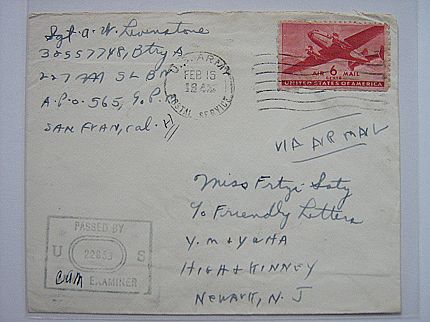 Sgt. A. W. Levenstone
38557748, Btry A
227 AAA SL Bn
A.P.O. 565, % P.M.
San Fran, Cal.
U.S. ARMY
FEB 15
POSTAL SERVICE
AIR 6¢ MAIL
UNITED STATES OF AMERICA
VIA AIR MAIL
Miss Fritzi Saty
% Friendly Letters
Y.M & YWHA
HIGH & KINNEY
NEWARK, N.J
PASSED BY
U 22653 S
EXAMINER